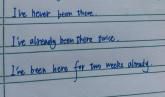 I've never been there.
I've already been there twice.
I've been here for two weeks already.